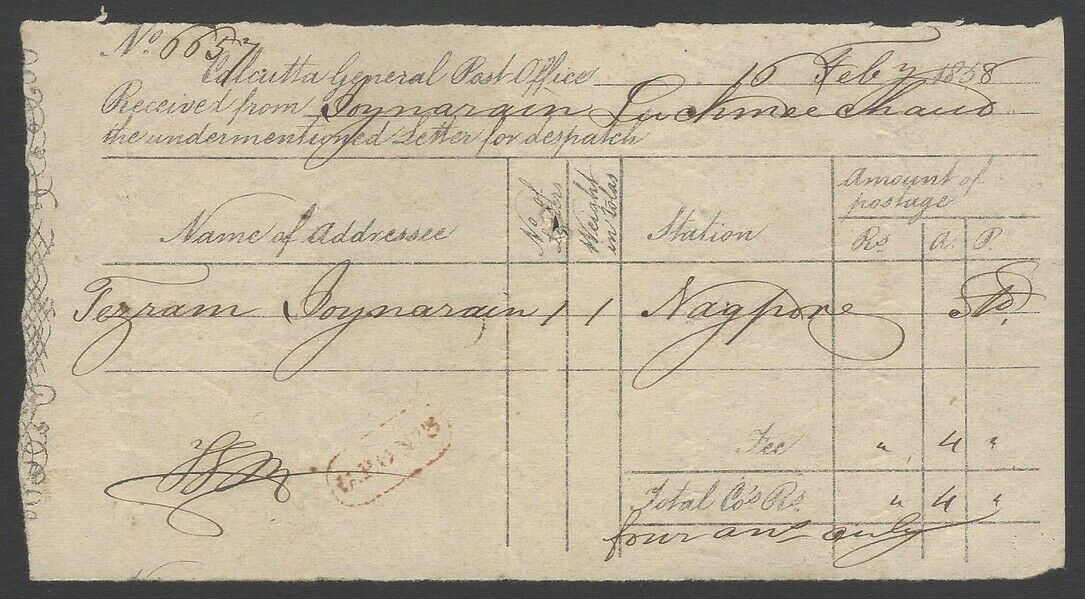 No 6657
Calcutta General Post Office 16 Feby 1858
Received from Joynarain Luchmee Chund
the undermentioned Letter for despatch
Name of Addressee No of Letters Weight in tolas Station Amount of postage
Rs A. P.
Tezram Joynarain 1 1 Nagpore
Fee " 4 "
Total Co's Rs. " 4 "
four ans only